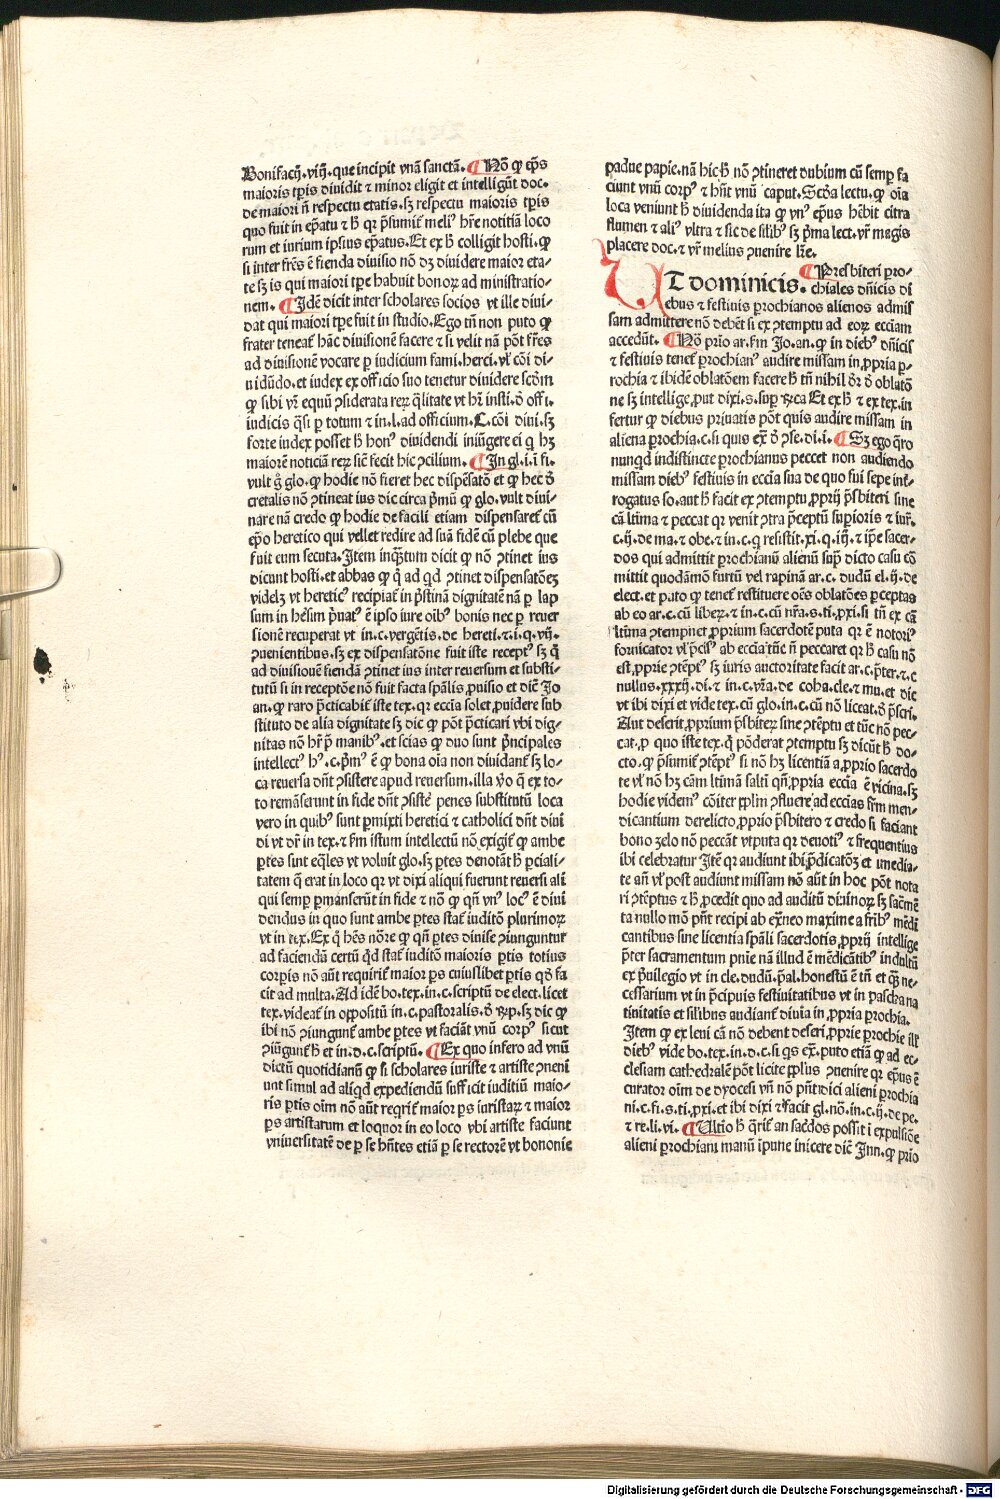 Bonifacij.viij.que incipit vnā sanctā. ¶ Nō ꝙ ep̄s
maioris tꝑis diuidit ⁊ minor eligit et intelligūt doc.
de maiori ñ respectu etatis.sꝫ respectu maioris tꝑis
quo fuit in ep̄atu ⁊ h̄ qꝛ p̄sumit̄ meliꝰ hr̄e notitiā loco
rum et iurium ipsius ep̄atus.Et ex h̄ colligit hosti.ꝙ
si inter fr̄es ē fienda diuisio nō dꝫ diuidere maior eta⸗
te sꝫ is qui maiori tꝑe habuit bonoꝝ ad ministratio⸗
nem. ¶ Idē dicit inter scholares socios vt ille diui⸗
dat qui maiori tꝑe fuit in studio.Ego tn̄ non puto ꝙ
frater teneat̄ hāc diuisionē facere ⁊ si velit nā pōt fr̄es
ad diuisionē vocare ꝑ iudicium fami.herci.vl̓ cōi di⸗
uidūdo.et iudex ex officio suo tenetur diuidere scd̄m
ꝙ sibi vr̄ equū ꝯsiderata reꝝ q̄litate vt hr̄ insti.ð offi.
iudicis q̄si ꝑ totum ⁊ in.l.ad officium.C.cōi diui.sꝫ
forte iudex posset h̄ honꝰ diuidendi iniūgere ei q hꝫ
maiorē noticiā reꝝ sic̄ fecit hic ꝯcilium. ¶ In gl.i.i fi.
vult g̊ glo.ꝙ hodie nō fieret hec dispēsatō et ꝙ hec ð
cretalis nō ꝯtineat ius dic circa p̄mū ꝙ glo.vult diui⸗
nare nā credo ꝙ hodie de facili etiam dispensaret̄ cū
ep̄o heretico qui vellet redire ad suā fidē cū plebe que
fuit eum secuta.Item inq̄tum dicit ꝙ nō ꝯtinet ius
dicunt hosti.et abbas ꝙ q̄ ad qd ꝯtinet dispensatōeꝫ
videlꝫ vt hereticꝰ recipiat̄ in p̄stinā dignitatē nā ꝑ lap
sum in heſim p̄uat̄ᷓ ē ipso iure oibꝰ bonis nec ꝑ reuer
sionē recuperat vt in.c.vergētis.de hereti.⁊.i.q.vij.
ꝯuenientibus.sꝫ ex dispensatōne fuit iste receptꝰ sꝫ q̄
ad diuisionē fiendā ꝯtinet ius inter reuersum et substi⸗
tutū si in receptōe nō fuit facta spālis ꝓuisio et dic̄ Jo
an.ꝙ raro p̄cticabit̄ iste tex.qꝛ eccīa solet ꝓuidere sub
stituto de alia dignitate sꝫ dic ꝙ pōt p̄cticari vbi dig⸗
nitas nō hr̄ p̄ manibꝰ.et scias ꝙ duo sunt p̄ncipales
intellectꝰ hꝰ.c.p̄mꝰ ē ꝙ bona oīa non diuidant̄ sꝫ lo⸗
ca reuersa dn̄t ꝯsistere apud reuersum.illa v̊o q̄ ex to⸗
to remāserunt in fide dn̄t ꝯsiste᷑ penes substitutū loca
vero in quibꝰ sunt ꝑmixti heretici ⁊ catholici dn̄t diui
di vt dr̄ in tex.⁊ s̄m istum intellectū nō exigit̄ ꝙ ambe
ꝑtes sint eq̄les vt voluit glo.sꝫ ꝑtes denotāt h̄ ꝑciali⸗
tatem q̄ erat in loco qꝛ vt dixi aliqui fuerunt reuersi alij
qui semꝑ ꝑmāserūt in fide ⁊ nō ꝙ qn̄ vnꝰ locꝰ ē diui
dendus in quo sunt ambe ꝑtes stat̄ iuditō plurimoꝝ
vt in tex.Ex q̊ hēs nōre ꝙ qn̄ ꝑtes diuise ꝯiunguntur
ad faciendū certū qd stat̄ iuditō maioris ꝑtis totius
corꝑis nō aūt requirit̄ maior ꝑs cuiuslibet ꝑtis qd̓ fa
cit ad multa.Ad idē bo.tex.in.c.scriptū de elect.licet
tex.videat̄ in oppositū in.c.pastoralis.ð rꝫp.sꝫ dic ꝙ
ibi nō ꝯiungunt̄ ambe ꝑtes vt faciāt vnū corpꝰ sicut
ꝯiūgunt̄ h̄ et in.d.c.scriptū. ¶ Ex quo infero ad vnū
dictū quotidianū ꝙ si scholares iuriste ⁊ artiste ꝯueni
unt simul ad aliqd expediendū sufficit iuditiū maio⸗
ris ꝑtis oīm nō aūt reqrit̄ maior ꝑs iuristaꝝ ⁊ maior
ꝑs artistarum et loquor in eo loco vbi artiste faciunt
vniuersitatē de ꝑ se hn̄tes etiā ꝑ se rectorē vt bononie
padue papie.nā hic h̄ nō ꝯtineret dubium cū semꝑ fa
ciunt vnū corpꝰ ⁊ hn̄t vnū caput.Scd̓a lectu.ꝙ oīa
loca veniunt h̄ diuidenda ita ꝙ vnꝰ ep̄us hēbit citra
flumen ⁊ aliꝰ vltra ⁊ sic de sil̓ibꝰ sꝫ p̄ma lect.vr̄ magis
placere doc.⁊ vr̄ melius ꝯuenire lr̄e.
UT dominicis. ¶ Presbiteri ꝑro⸗
chiales dn̄icis di
ebus ⁊ festiuis ꝑrochianos alienos admis
sam admittere nō debēt si ex ꝯtemptu ad eoꝝ eccīam
accedūt. ¶ Nō prīo ar.s̄m Jo.an.ꝙ in diebꝰ dn̄icis
⁊ festiuis tenet̄ ꝑrochianꝰ audire missam in ꝓpria ꝑ⸗
rochia ⁊ ibidē oblatōem facere h̄ tn̄ nihil dr̄ ð oblatō
ne sꝫ intellige ꝓut dixi.s.suꝑ rꝫca Et ex h̄ ⁊ ex tex.in
fertur ꝙ diebus priuatis pōt quis audire missam in
aliena ꝑrochia.c.si quis ex̄ ð ꝯse.di.i. ¶ Sꝫ ego q̄ro
nunqd indistincte ꝑrochianus peccet non audiendo
missam diebꝰ festiuis in eccīa sua de quo fui sepe int̄⸗
rogatus so.aut h̄ facit ex ꝯtemptu ꝓprij p̄sbiteri sine
cā ltīma ⁊ peccat qꝛ venit ꝯtra p̄ceptū supīoris ⁊ iur̄.
c.ij.de ma.⁊ obe.⁊ in.c.q resistit.xi.q.iij.⁊ ip̄e sacer⸗
dos qui admittit ꝑrochianū alienū suꝑ dicto casu cō
mittit quodāmō furtū vel rapinā ar.c.dudū el.ij.de
elect.et puto ꝙ tenet̄ restituere oēs oblatōes ꝑceptas
ab eo ar.c.cū libeꝝ.⁊ in.c.cū nr̄a.s.ti.ꝓxi.si tn̄ ex cā
ltīma ꝯtempnet ꝓprium sacerdotē puta qꝛ ē notoriꝰ
fornicator vl̓ p̄cisꝰ ab eccīa tūc ñ peccaret qꝛ h̄ casu nō
est ꝓprie ꝯtēptꝰ sꝫ iuris auctoritate facit ar.c.p̄ter.⁊.c
nullus.xxxij.di.⁊ in.c.vr̄a.de coha.cle.⁊ mu.et dic
vt ibi dixi et vide tex.cū glo.in.c.cū nō liceat.ð p̄scri.
Aut deserit ꝓprium p̄sbiteꝝ sine ꝯtēptu et tūc nō pec⸗
cat.p quo iste tex.q̊ pōderat ꝯtemptu sꝫ dicūt h̄ do⸗
cto.ꝙ p̄sumit̄ ꝯtēptꝰ si nō hꝫ licentiā a ꝓprio sacerdo
te vl̓ nō hꝫ cām ltīmā saltī qn̄ ꝓpria eccīa ē vicina.sꝫ
hodie videmꝰ cōiter ppl̓m ꝯfluere ad eccīas fr̄m men⸗
dicantium derelicto ꝓprio p̄sbitero ⁊ credo si faciant
bono zelo nō peccāt vtputa qꝛ deuotiꝰ ⁊ frequentius
ibi celebratur Itē qꝛ audiunt ibi p̄dicatōꝫ et imedia⸗
te an̄ vl̓ post audiunt missam nō aūt in hoc pōt nota
ri ꝯtēptus ⁊ h̄ ꝓcedit quo ad auditū diuinoꝝ sꝫ sacm̄ē
ta nullo mō pn̄t recipi ab ex̄neo maxime a fr̄ibꝰ mēdi
cantibus sine licentia spāli sacerdotis ꝓprij intellige
p̄ter sacramentum pnīe nā illud ē mēdicātibꝰ indultū
ex p̄uilegio vt in cle.dudū.p̄al.honestū ē tn̄ et q̄si ne⸗
cessarium vt in p̄cipuis festiuitatibus vt in paschā na
tiuitatis et sil̓ibus audiant̄ diuīa in ꝓpria ꝑrochia.
Item ꝙ ex leui cā nō debent deseri ꝓprie ꝑrochie ill̓
diebꝰ vide bo.tex.in.d.c.si qs ex̄.puto etiā ꝙ ad ec⸗
clesiam cathedralē pōt licite ppl̓us ꝯuenire qꝛ ep̄us ē
curator oīm de dyocesi vn̄ nō pn̄t dici alieni ꝑrochia
ni.c.fi.s.ti.ꝓxi.et ibi dixi ⁊ facit gl.nō.in.c.ij.de pe.
⁊ re.li.vi. ¶ Ultīo h̄ q̄rit̄ an sac̄dos possit ī expulsiōe
alieni ꝑrochiani manū īpune inicere dic̄ Inn.ꝙ prīo
Digitalisierung gefördert durch die Deutsche Forschungsgemeinschaft - DFG